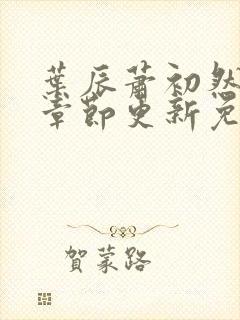 葉辰蕭初然
章節更新免
賀蒙路